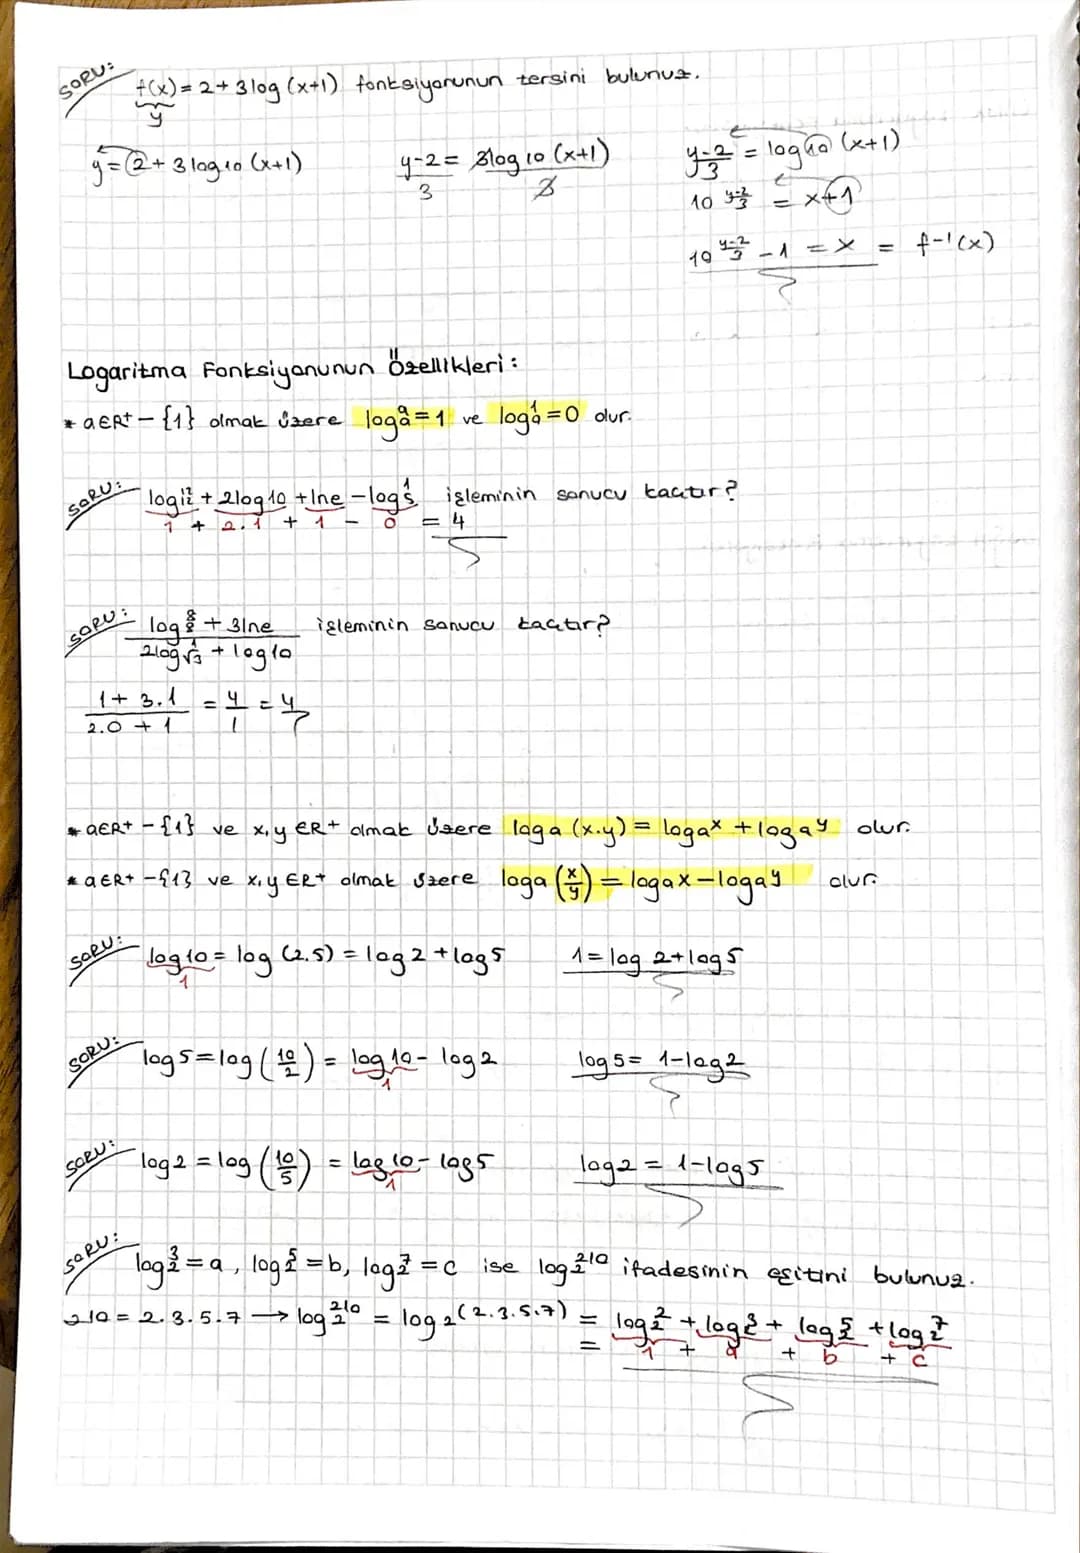 SORU: f(x) = 2 + 3log (x+1) fonksiyonunun tersini bulunuz.
y
y = 2 + 3 log10 (x+1)
y-2 = 3log10 (x+1)
3 3
y-2/3 = log10 (x+1)
10^(y-2/3) = x+1
10^(y-2/3) - 1 = x = f-1(x)
Logaritma Fonksiyonunun Özellikleri:
* a∈R+ - {1} olmak üzere logₐa = 1 ve logₐ1 = 0 olur.
SORU: log₁₂12 + 2log10 + lne - log₅1 işleminin sonucu kaçtır?
1 + 2.1 + 1 - 0 = 4
SORU: log₈8 + 3lne / 2log√3 1 + log10 işleminin sonucu kaçtır?
1 + 3.1 / 2.0 + 1 = 4/1 = 4
* a∈R+ - {1} ve x,y ∈R+ olmak üzere loga (x.y) = logax + logay olur.
* a∈R+ - {1} ve x,y ∈R+ olmak üzere loga (x/y) = logax - logay olur.
SORU: log10 = log (2.5) = log2 + log5 1 = log 2 + log5
1
SORU: log5 = log (10/2) = log10 - log2 log5 = 1 - log2
1
SORU: log2 = log (10/5) = log10 - log5 log2 = 1 - log5
1
SORU: log₂3 = a, log₂5 = b, log₂7 = c ise log₂210 ifadesinin eşitini bulunuz.
210 = 2.3.5.7 → log₂210 = log₂(2.3.5.7) = log₂2 + log₂3 + log₂5 + log₂7
= 1 + a + b + c